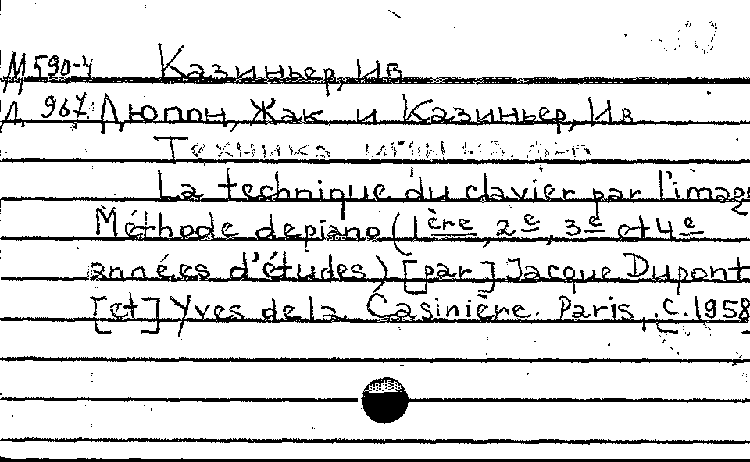 М 590-4 Казиньер, Ив
Д 967 Дюпон, Жак и Казиньер, Ив
Техника игры на ф-п
La technique du clavier par l'imag
Méthode de piano (1ère, 2e, 3e et 4e
années d'études) [par] Jacque Dupont
[et] Yves de la Casinière. Paris, c. 1958